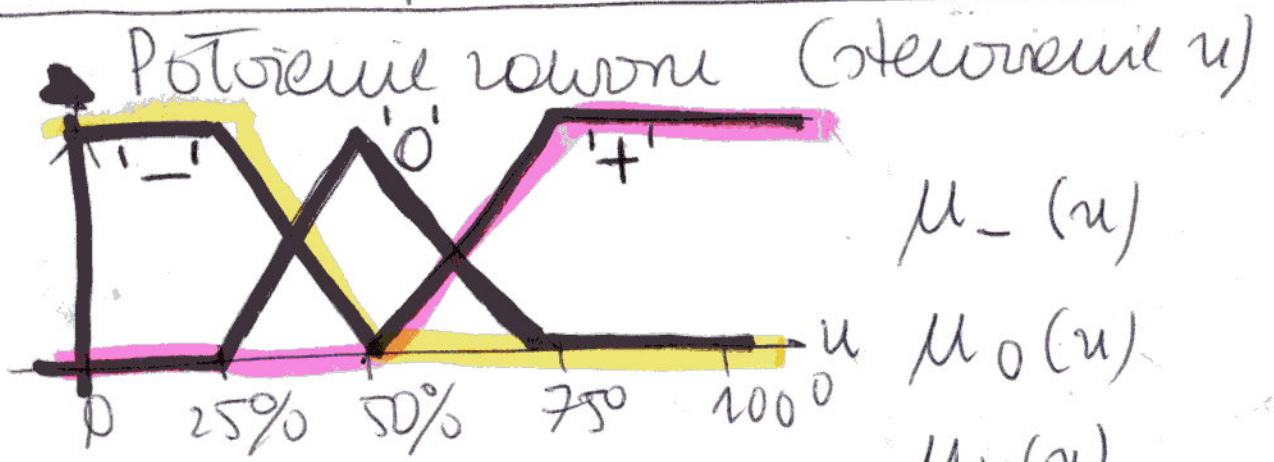 Położenie zaworu (sterowanie u)
'-' '0' '+'
μ_ (u)
μ 0 (u)
u
0 25% 50% 75⁰ 100⁰
μ+(u)